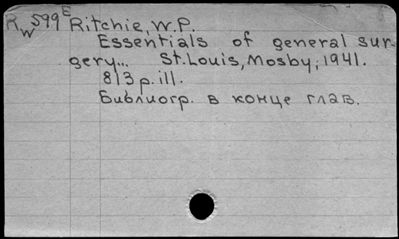 R W 599 E Ritchie, W.P.
Essentials of general sur-
gery... St. Louis, Mosby, 1941.
813 p. ill.
Библиогр. в конце глав.